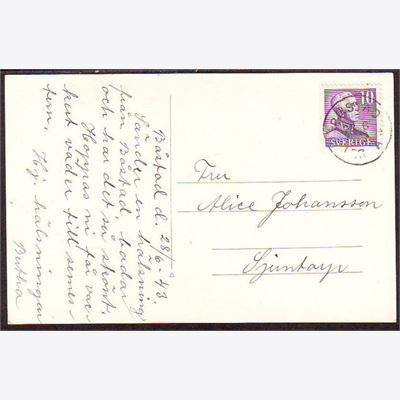 Båstad d. 28/6-43.
Sänder en hälsning
från Båstad, badar
och har det så skönt.
Hoppas ni få vac-
kert väder till semes-
tern. Hj. hälsningar
Bertha
10
SVERIGE
Fru
Alice Johansson
Sjuntorp